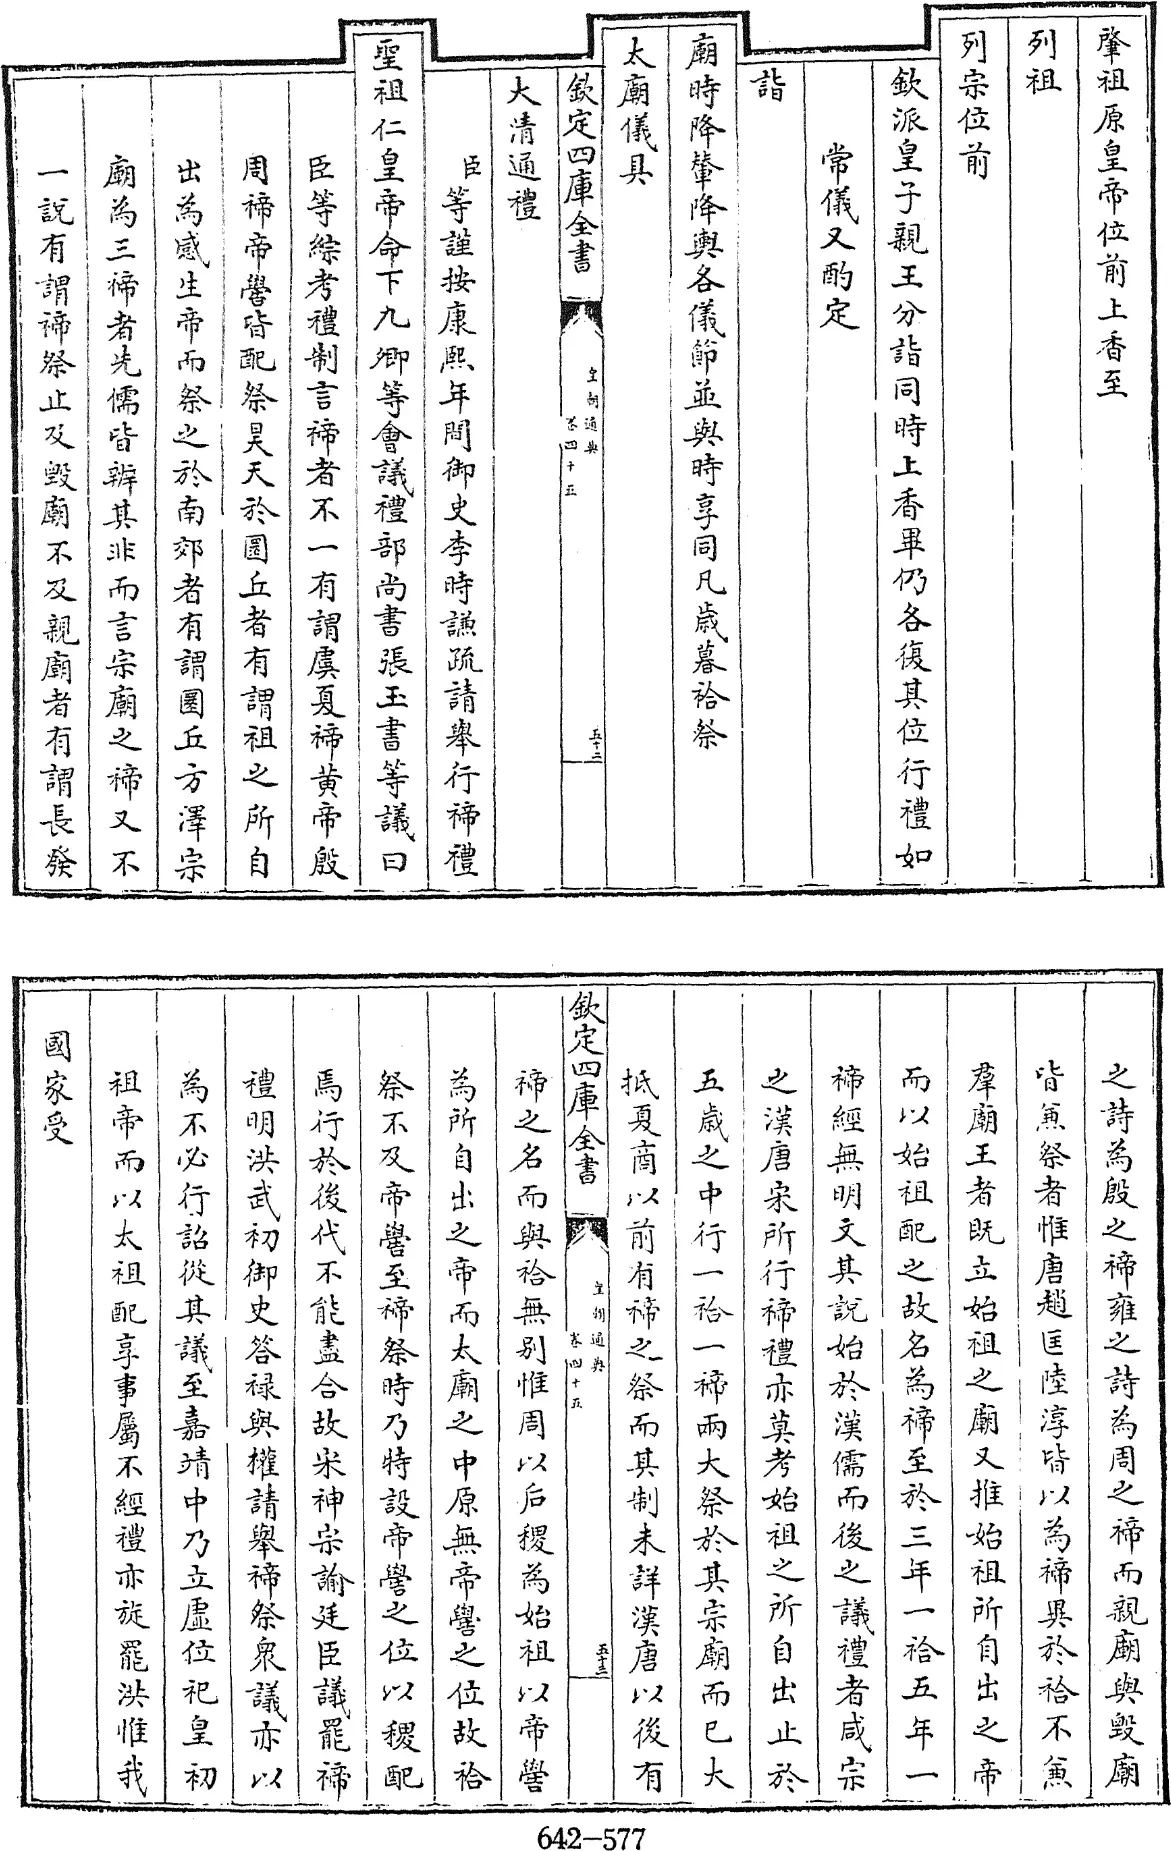 肇祖原皇帝位前上香至
列祖
列宗位前
欽派皇子親王分詣同時上香畢仍各復其位行禮如
常儀又酌定
詣
廟時降輦降輿各儀節並與時享同凡歲暮祫祭
太廟儀具
欽定四庫全書
皇朝通典
卷四十五
五十二
大清通禮
臣等謹按康熙年間御史李時謙疏請舉行禘禮
聖祖仁皇帝命下九卿等會議禮部尚書張玉書等議曰
臣等綜考禮制言禘者不一有謂虞夏禘黃帝殷
周禘帝嚳皆配祭昊天於圜丘者有謂祖之所自
出為感生帝而祭之於南郊者有謂圜丘方澤宗
廟為三禘者先儒皆辨其非而言宗廟之禘又不
一說有謂禘祭止及毀廟不及親廟者有謂長發
之詩為殷之禘雍之詩為周之禘而親廟與毀廟
皆兼祭者惟唐趙匡陸淳皆以為禘異於祫不兼
羣廟王者既立始祖之廟又推始祖所自出之帝
而以始祖配之故名為禘至於三年一祫五年一
禘經無明文其說始於漢儒而後之議禮者咸宗
之漢唐宋所行禘禮亦莫考始祖之所自出止於
五歲之中行一祫一禘兩大祭於其宗廟而已大
抵夏商以前有禘之祭而其制未詳漢唐以後有
欽定四庫全書
皇朝通典
卷四十五
五十三
禘之名而與祫無別惟周以后稷為始祖以帝嚳
為所自出之帝而太廟之中原無帝嚳之位故祫
祭不及帝嚳至禘祭時乃特設帝嚳之位以稷配
焉行於後代不能盡合故宋神宗諭廷臣議罷禘
禮明洪武初御史答祿與權請舉禘祭衆議亦以
為不必行詔從其議至嘉靖中乃立虛位祀皇初
祖帝而以太祖配享事屬不經禮亦旋罷洪惟我
國家受
642-577